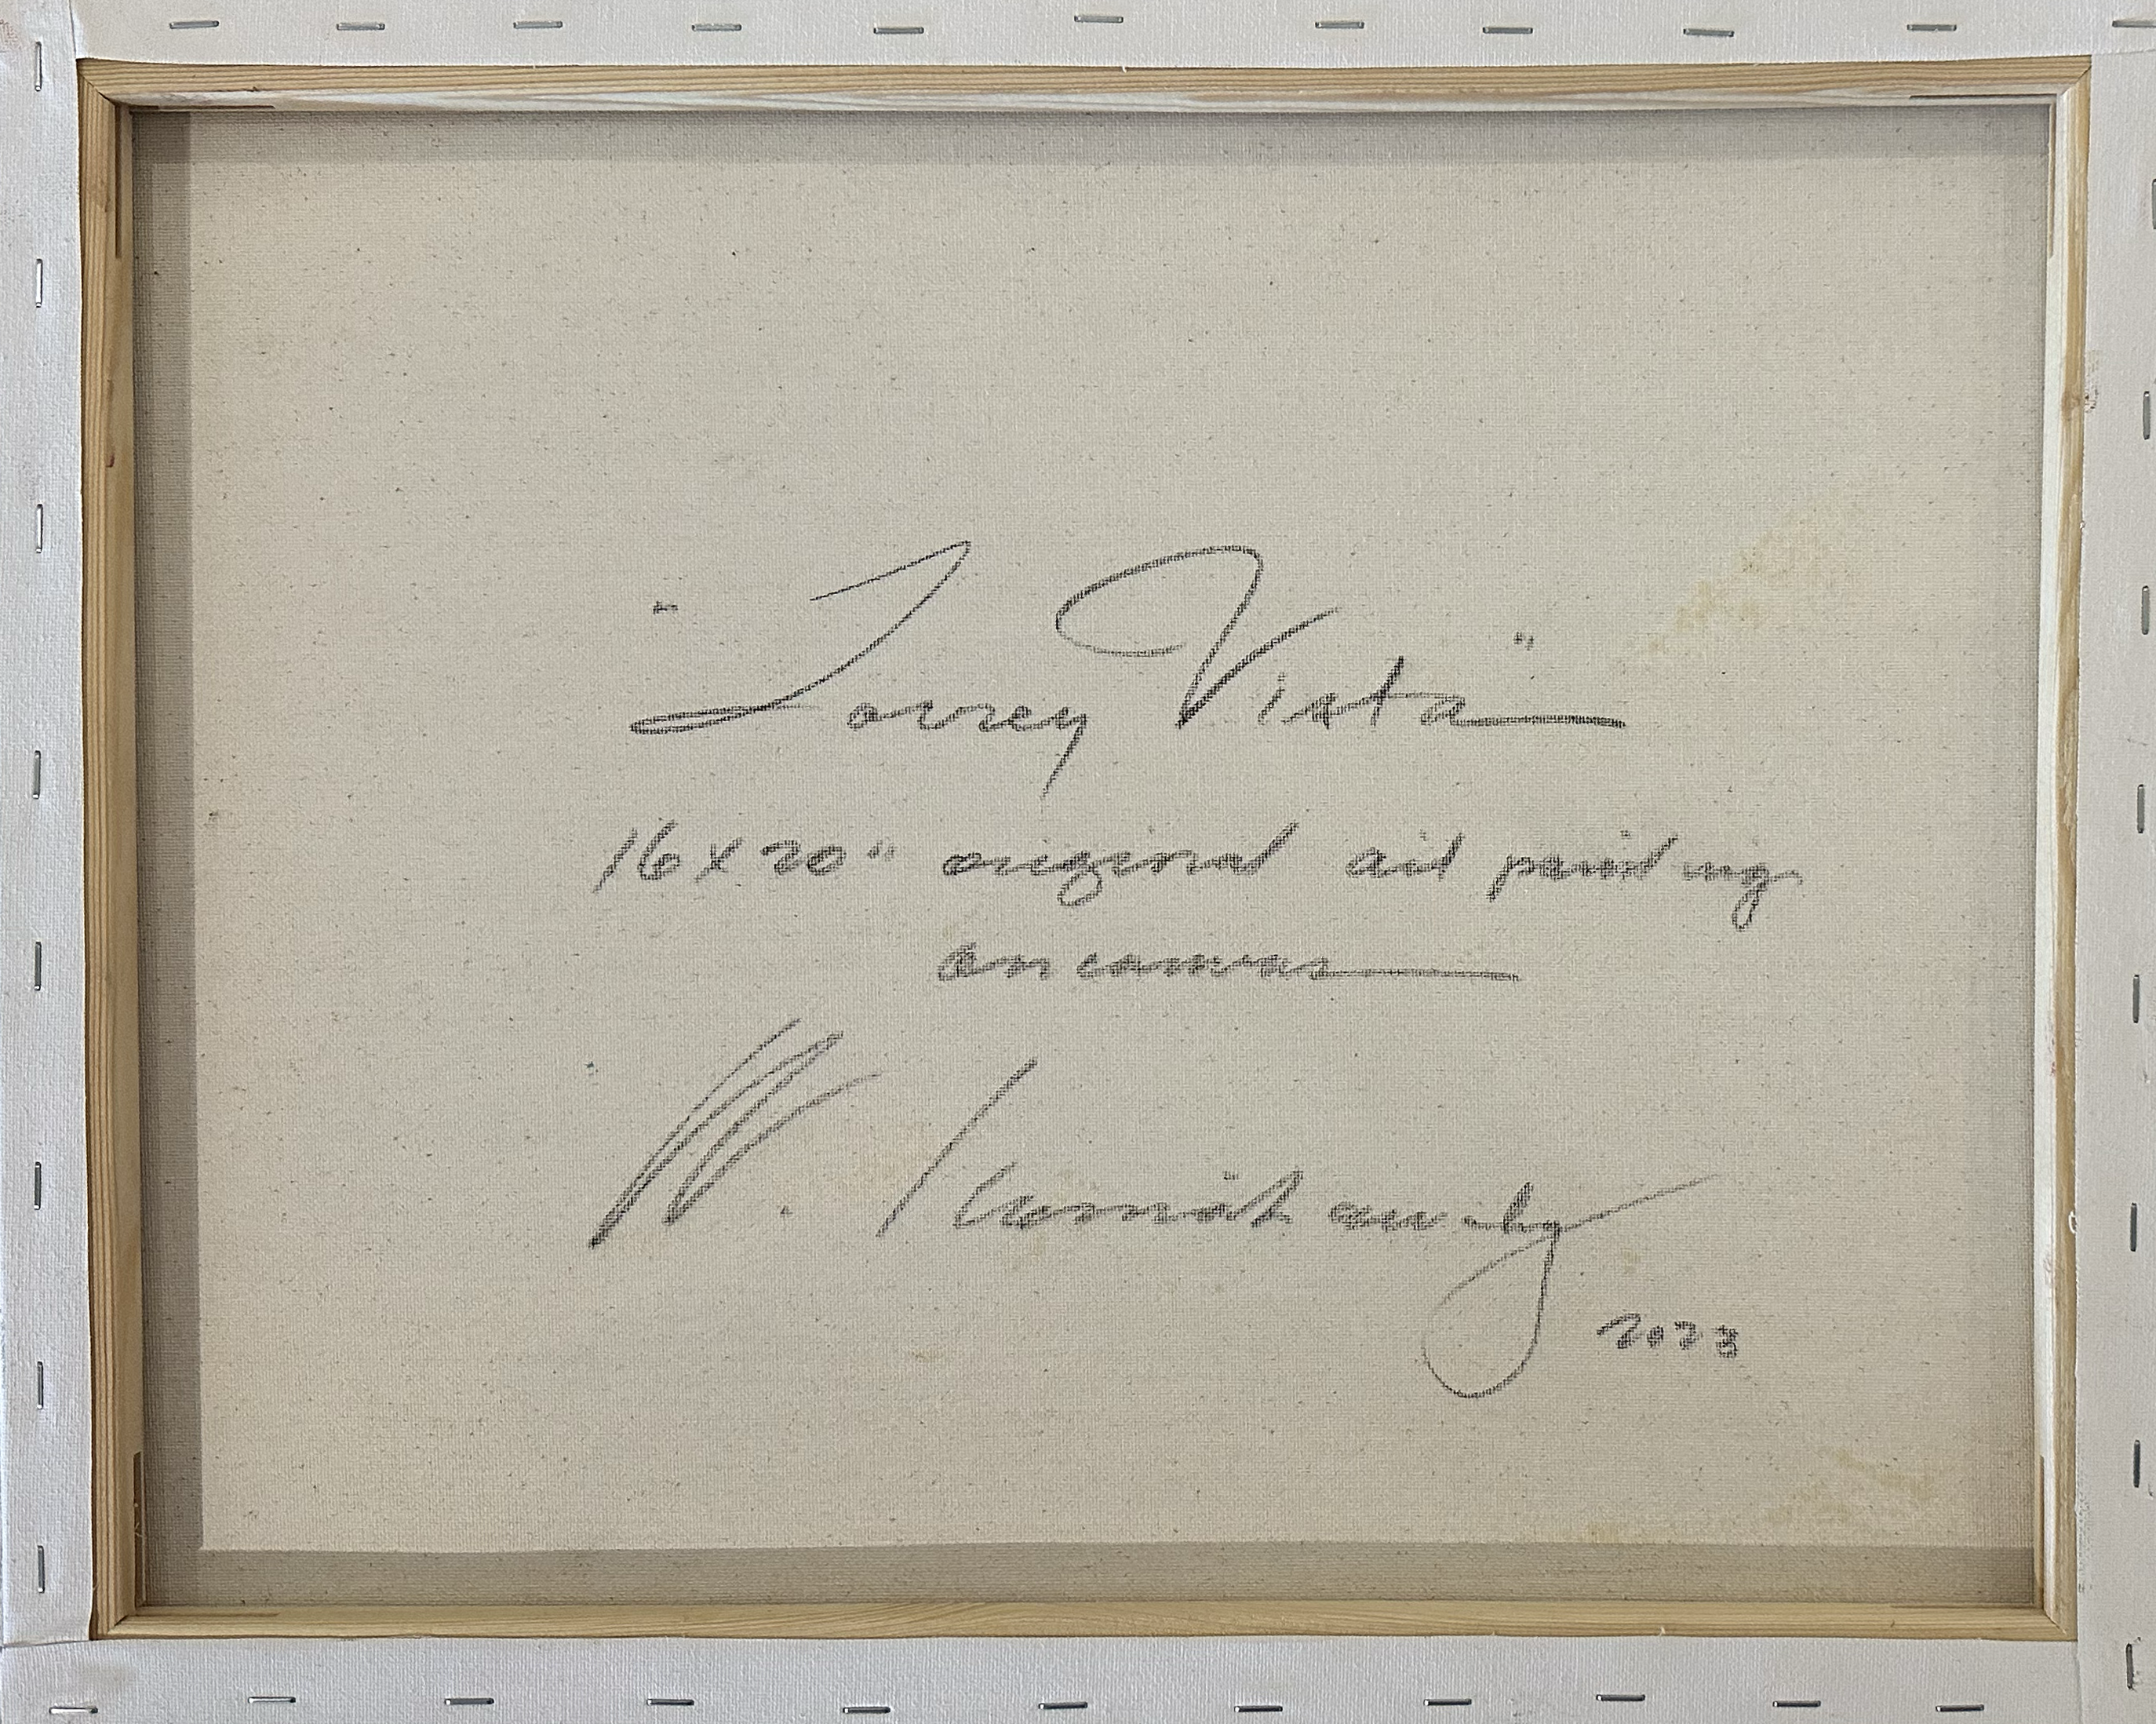 "Torrey Vista"
16 x 20" original oil painting
on canvas
W.
2023